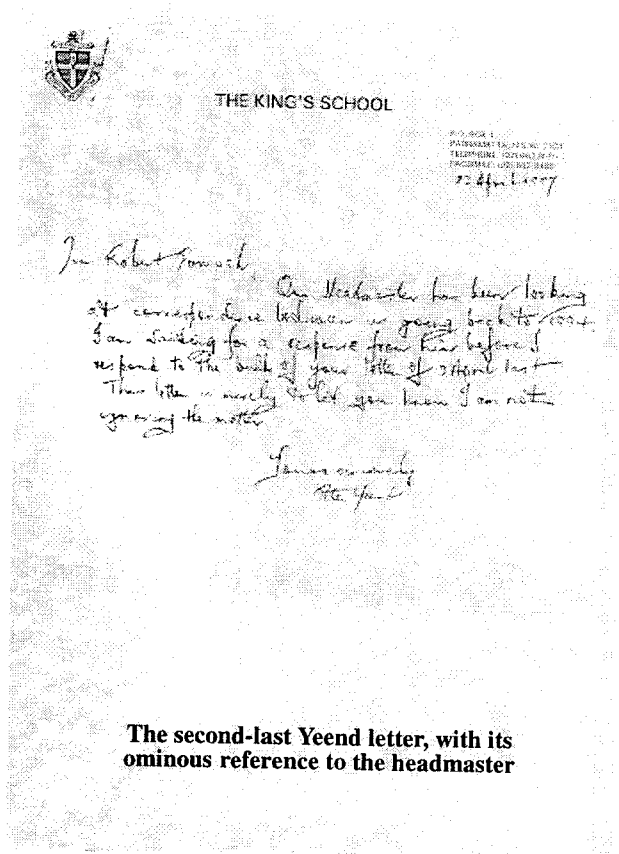 THE KING'S SCHOOL
P.O. BOX 1
PARRAMATTA, N.S.W. 2124
TELEPHONE
FACSIMILE
23 April 1997
Robert
Our Headmaster has been looking
at correspondence between us going back to 1994.
I am waiting for a response from him before I
respond to the bulk of your letter of April last
This letter is merely to let you know I am not
ignoring the matter
Yours sincerely
Peter Yeend
The second-last Yeend letter, with its
ominous reference to the headmaster